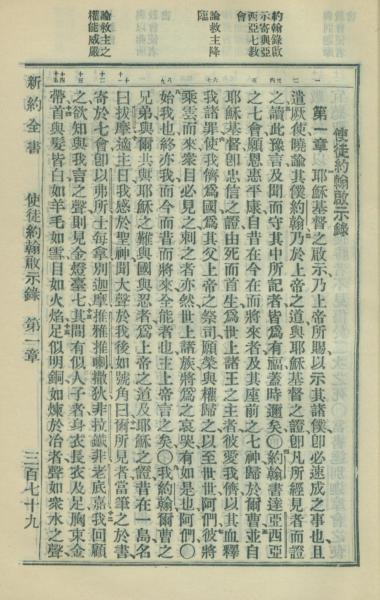 約翰錄啟
示寄與亞
西亞七教
會
論救主降
臨
論救主之
權能威嚴
使徒約翰啟示錄
第一章
耶穌基督之啟示乃上帝所賜以示其諸僕卽必速成之事也且
遣厥使曉諭其僕約翰乃於上帝之道與耶穌基督之證卽凡所經見者而證
之讀此豫言及聞而守其中所記者皆爲有福蓋時邇矣〇約翰書達亞西亞
之七會願恩惠平康自昔在今在而將來者及其座前之七神歸於爾曹並自
耶穌基督卽忠信之證由死而首生爲世上諸王之主者彼愛我儕以其血釋
我諸罪使我儕爲國爲其父上帝之祭司願榮與權歸之以至世世阿們彼將
乘雲而來衆目必見之刺之者亦然世上諸族將爲之哀哭有如是也阿們〇
始我也終亦我而今而昔而將來全能者也主上帝言之矣〇我約翰爾曹之
兄弟與爾共與耶穌之難與國與忍者爲上帝之道及耶穌之證昔在一島名
曰拔摩適主日我感於聖神聞大聲於我後如號角曰爾所見者當筆之於書
寄於七會卽以弗所士每拿別迦摩推雅推喇撒狄非拉鐵非老底嘉我回顧
之欲知與我言之聲則見金燈臺七其間有似人子者身衣長衣及足胸束金
帶首與髮皆白如羊毛如雪目如火焰足似明銅如煉於冶者聲如衆水之聲
新約全書
使徒約翰啟示錄
第一章
三百七十九